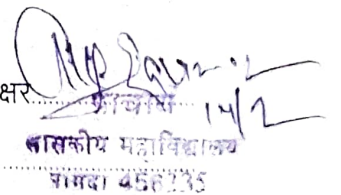 क्षर..........
प्राचार्य 14/2
शासकीय महाविद्यालय
नागदा 456335